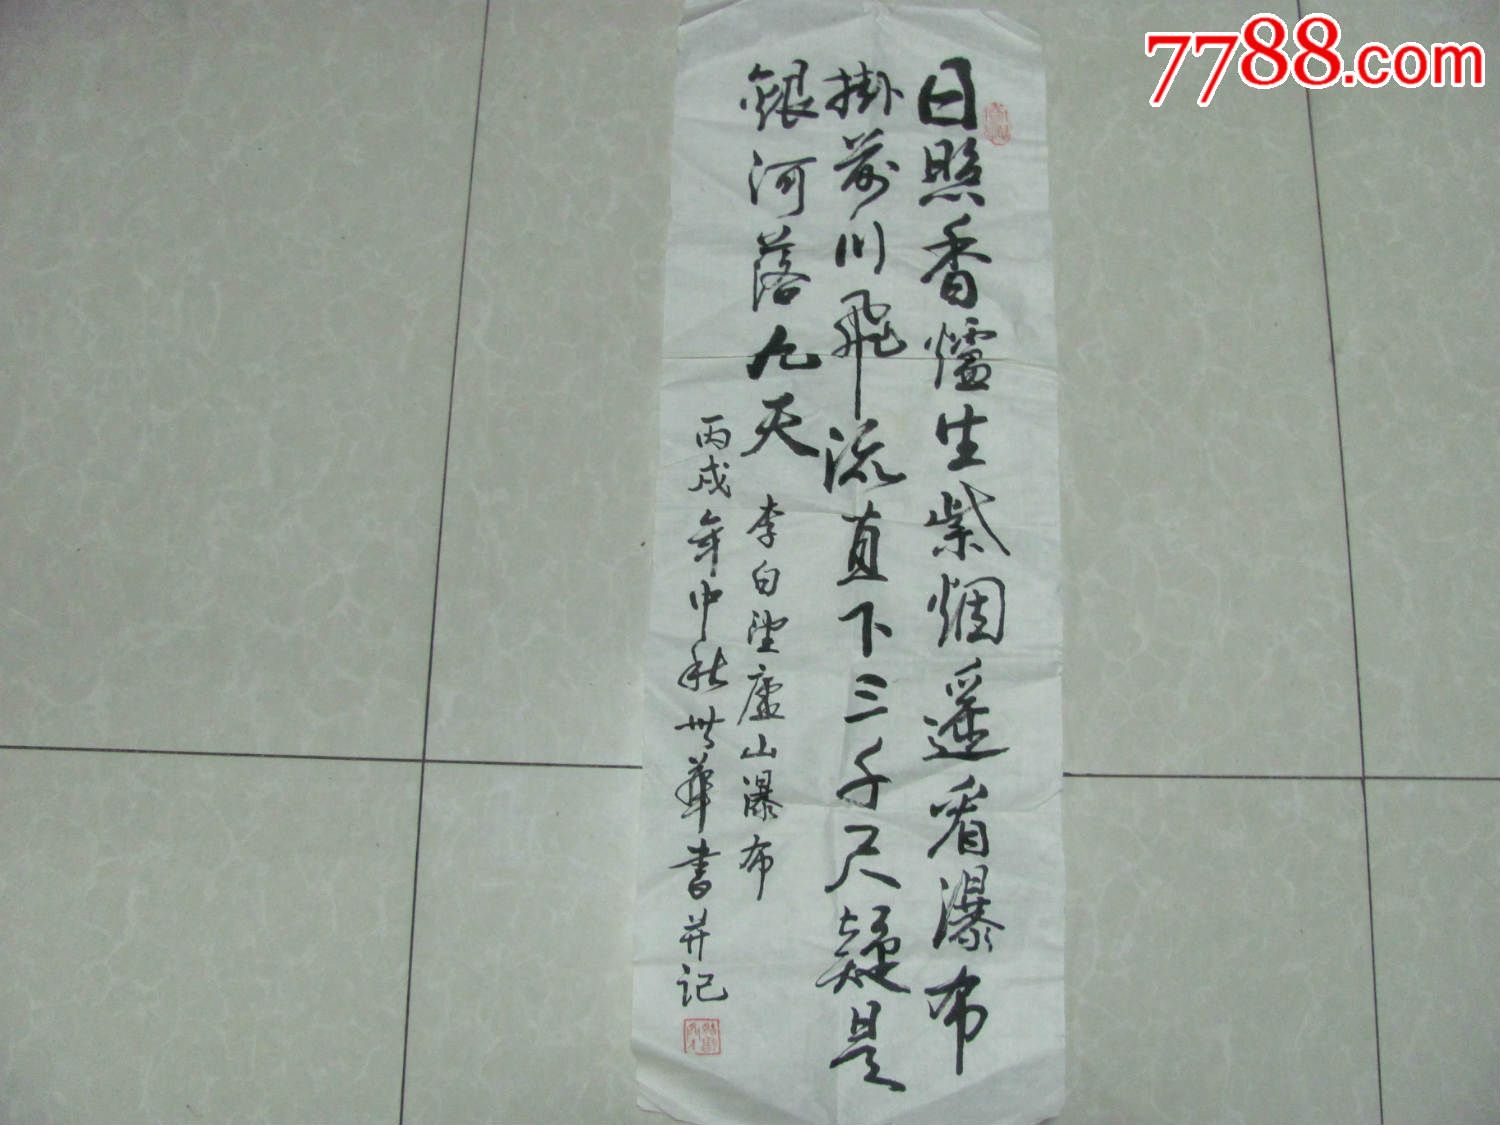 日照香爐生紫烟遥看瀑布
掛前川飛流直下三千尺疑是
銀河落九天
李白望廬山瀑布
丙戌年中秋世華書并记
7788.com